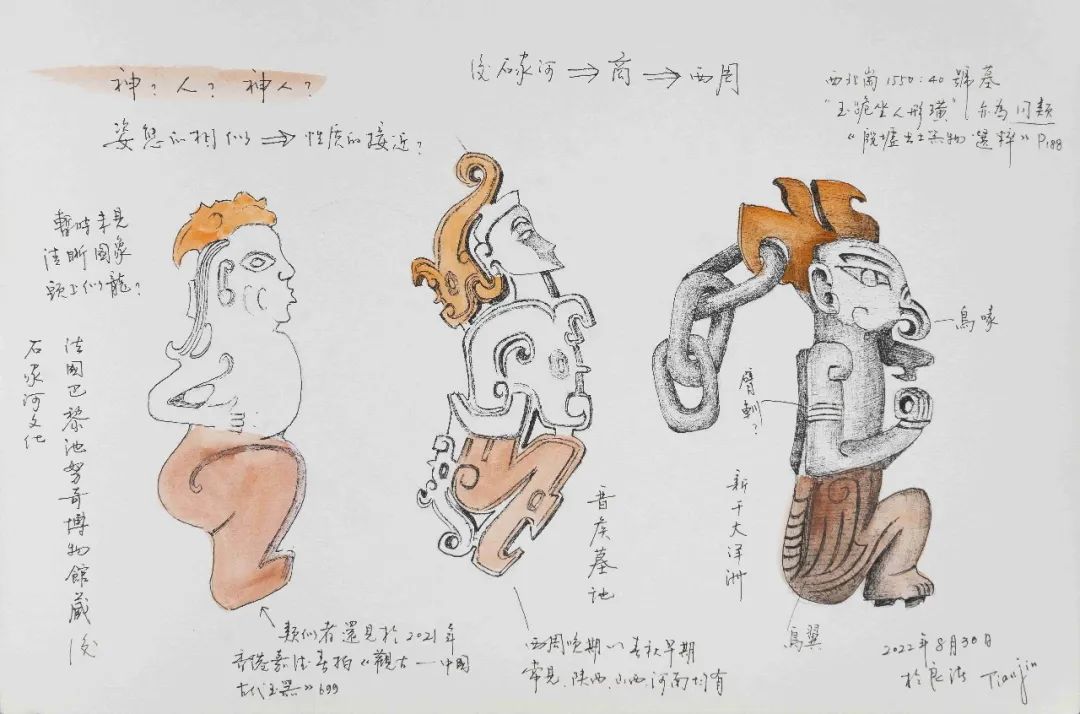 神？人？神人？
姿态的相似⇒性质的接近？
後石家河⇒商⇒西周
西北崗1550:40號墓
"玉跪坐人形璜"亦為同類
《殷墟出土器物選粹》P188
暫時未見
清晰圖象
頭上似龍？
法國巴黎池努奇博物館藏 後
石家河文化
鳥喙
臂釧？
晋侯墓地
新干大洋洲
鳥翼
類似者還見於2021年
香港嘉德春拍《觀古一中國
古代玉器》699
西周晚期～春秋早期
常見、陝西、山西、河南均有
2022年8月30日
於良渚 Tianjin